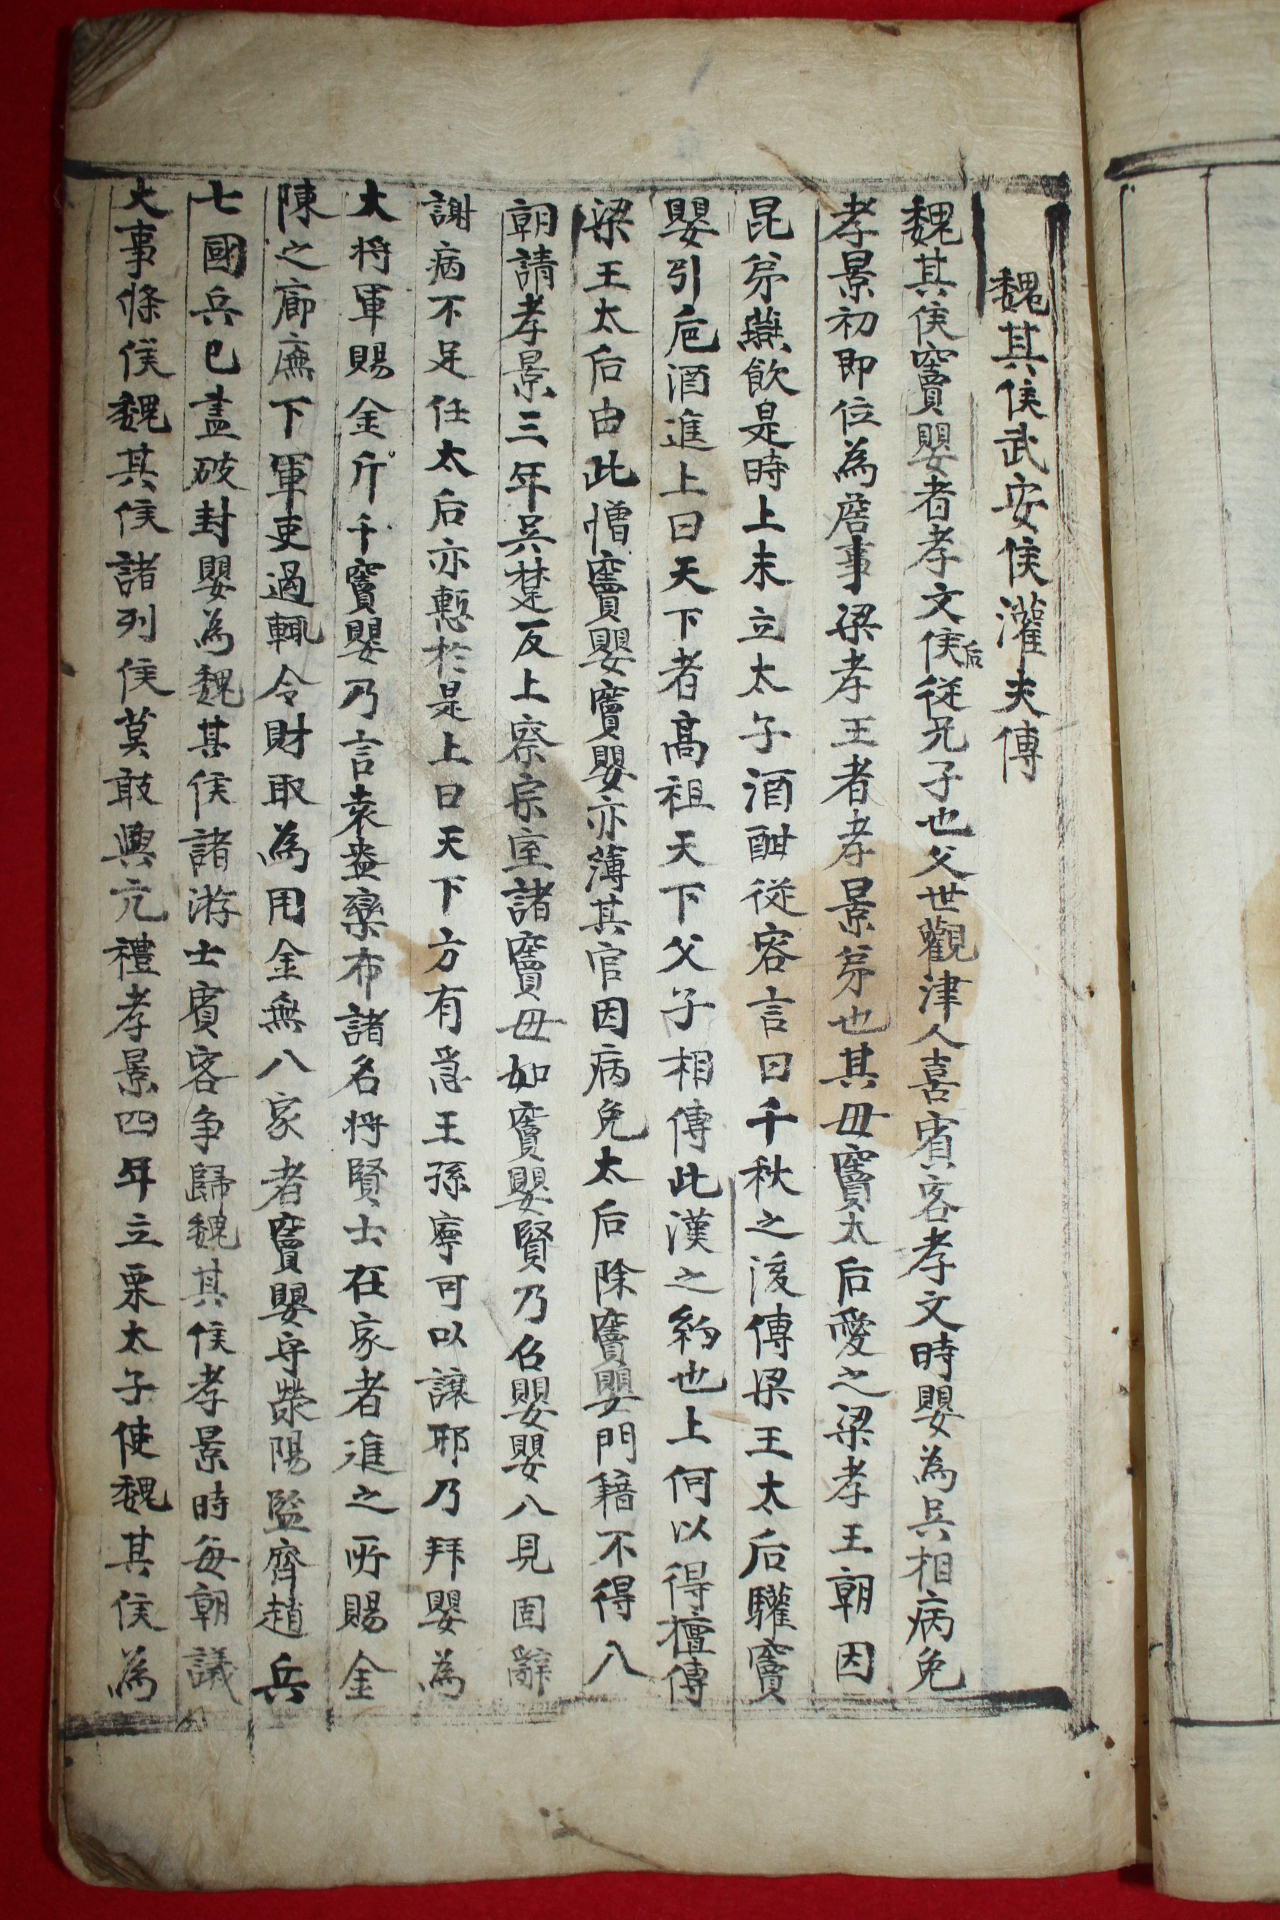 魏其侯武安侯灌夫傳
魏其侯竇嬰者孝文侯后從兄子也父世觀津人喜賓客孝文時嬰為吳相病免
孝景初即位為詹事梁孝王者孝景弟也其毋竇太后愛之梁孝王朝因
昆弟燕飲是時上未立太子酒酣從容言曰千秋之後傳梁王太后驩竇
嬰引卮酒進上曰天下者高祖天下父子相傳此漢之約也上何以得擅傳
梁王太后由此憎竇嬰竇嬰亦薄其官因病免太后除竇嬰門籍不得八
朝請孝景三年吳楚反上察宗室諸竇毋如竇嬰賢乃召嬰嬰八見固辭
謝病不足任太后亦慙於是上曰天下方有急王孫寧可以讓邪乃拜嬰為
大將軍賜金斤千竇嬰乃言袁盎欒布諸名將賢士在家者進之所賜金
陳之廊廡下軍吏過輒令財取為用金無八家者竇嬰守滎陽監齊趙兵
七國兵已盡破封嬰為魏其侯諸游士賓客争歸魏其侯孝景時每朝議
大事條侯魏其侯諸列侯莫敢與亢禮孝景四年立栗太子使魏其侯為